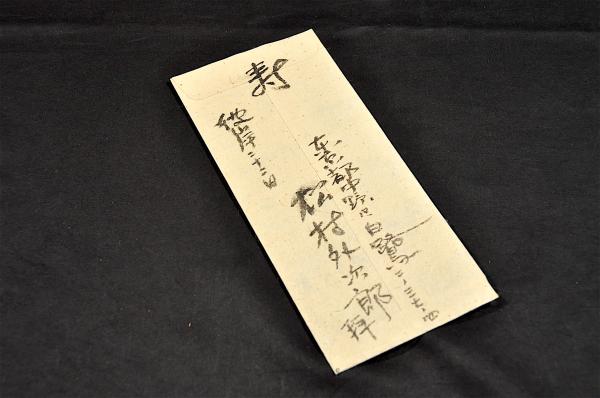 寿
東京都中野区白鷺二ノ三七ノ四
松村外次郎拝
彼岸二十二日